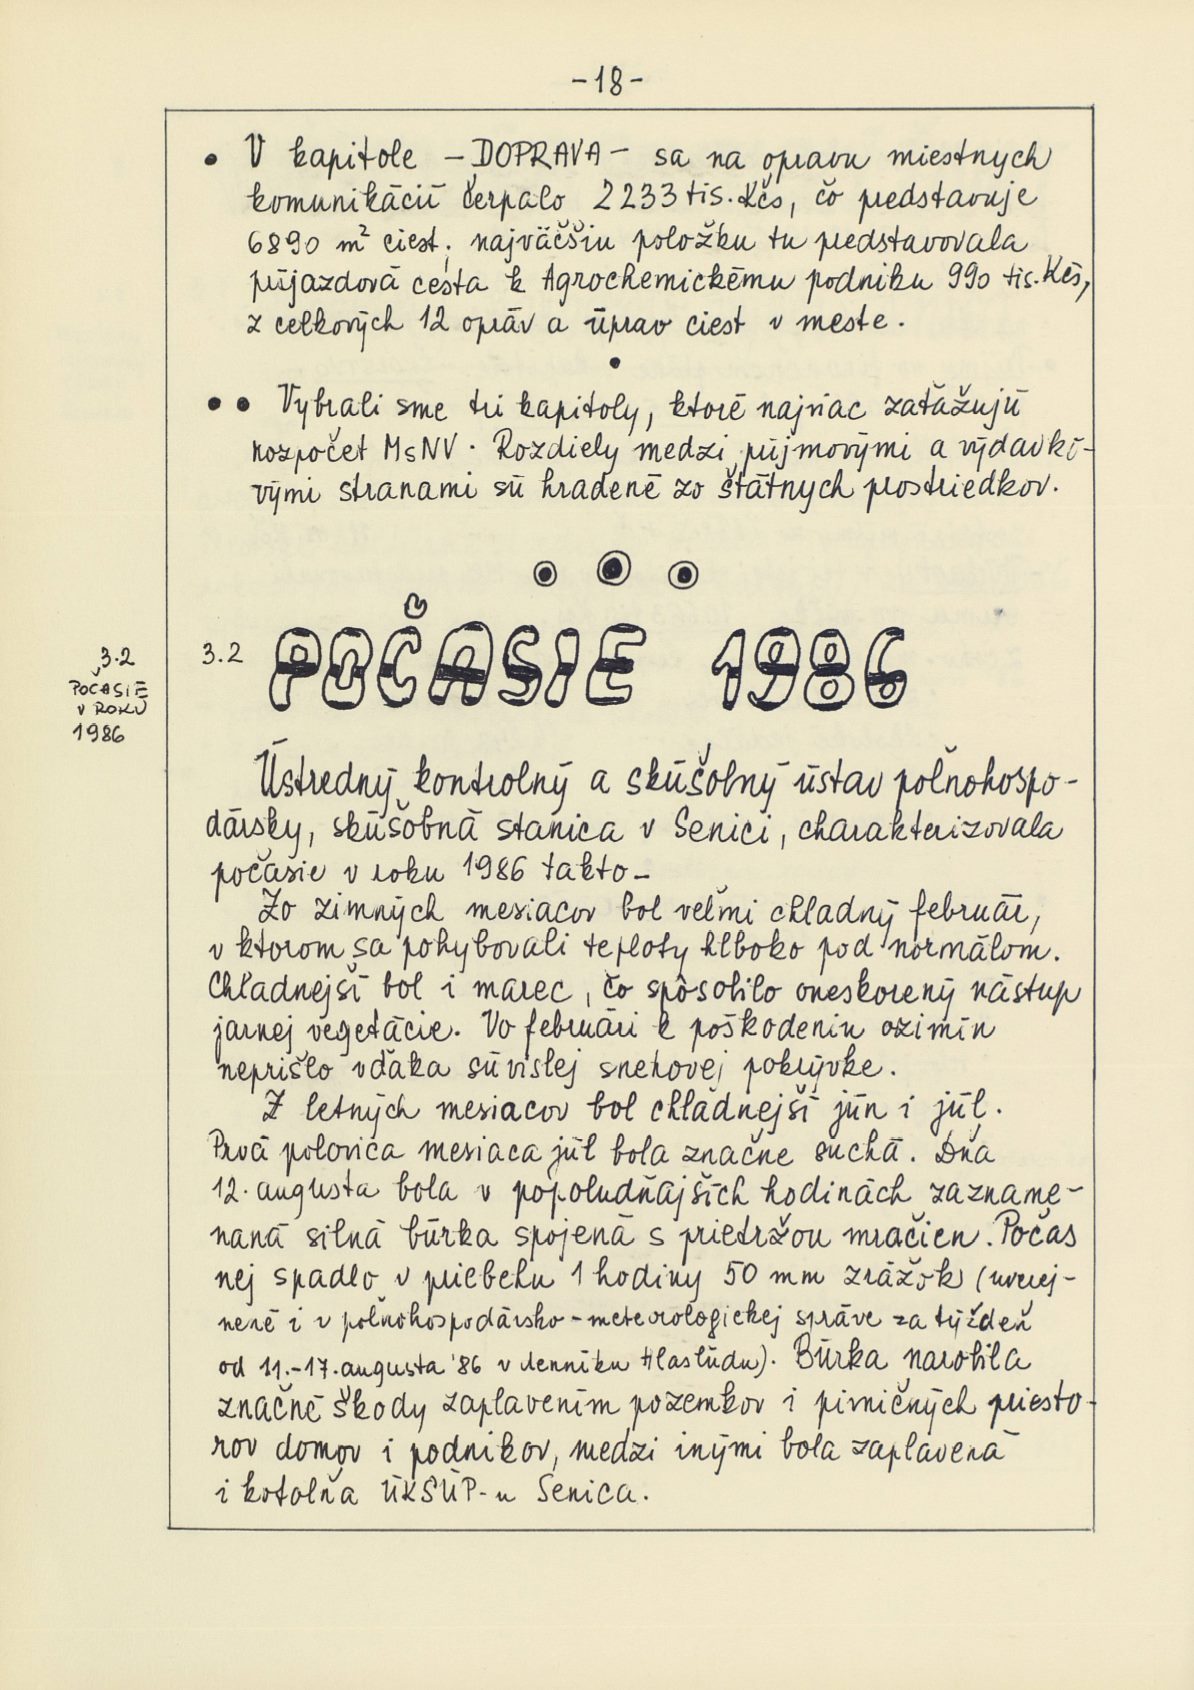 -18-
• V kapitole - DOPRAVA - sa na opravu miestnych
komunikácií čerpalo 2233 tis. Kčs, čo predstavuje
6890 m² ciest; najväčšiu položku tu predstavovala
príjazdová cesta k Agrochemickému podniku 990 tis. Kčs,
z celkových 12 opráv a úprav ciest v meste.
•
• • Vybrali sme tri kapitoly, ktoré najviac zaťažujú
rozpočet MsNV. Rozdiely medzi príjmovými a výdavko-
vými stranami sú hradené zo štátnych prostriedkov.
3.2
POČASIE
V ROKU
1986
3.2 POČASIE 1986
Ústredný kontrolný a skúšobný ústav poľnohospo-
dársky, skúšobná stanica v Senici, charakterizovala
počasie v roku 1986 takto -
Zo zimných mesiacov bol veľmi chladný február,
v ktorom sa pohybovali teploty hlboko pod normálom.
Chladnejší bol i marec, čo spôsobilo oneskorený nástup
jarnej vegetácie. Vo februári k poškodeniu ozimín
neprišlo vďaka súvislej snehovej pokrývke.
Z letných mesiacov bol chladnejší jún i júl.
Prvá polovica mesiaca júl bola značne suchá. Dňa
12. augusta bola v popoludňajších hodinách zazname-
naná silná búrka spojená s prietržou mračien. Počas
nej spadlo v priebehu 1 hodiny 50 mm zrážok (uverej-
nené i v poľnohospodársko-meteorologickej správe za týždeň
od 11.-17. augusta '86 v denníku Hlas ľudu). Búrka narobila
značné škody zaplavením pozemkov i pivničných priesto-
rov domov i podnikov, medzi inými bola zaplavená
i kotolňa ÚKSÚP-u Senica.